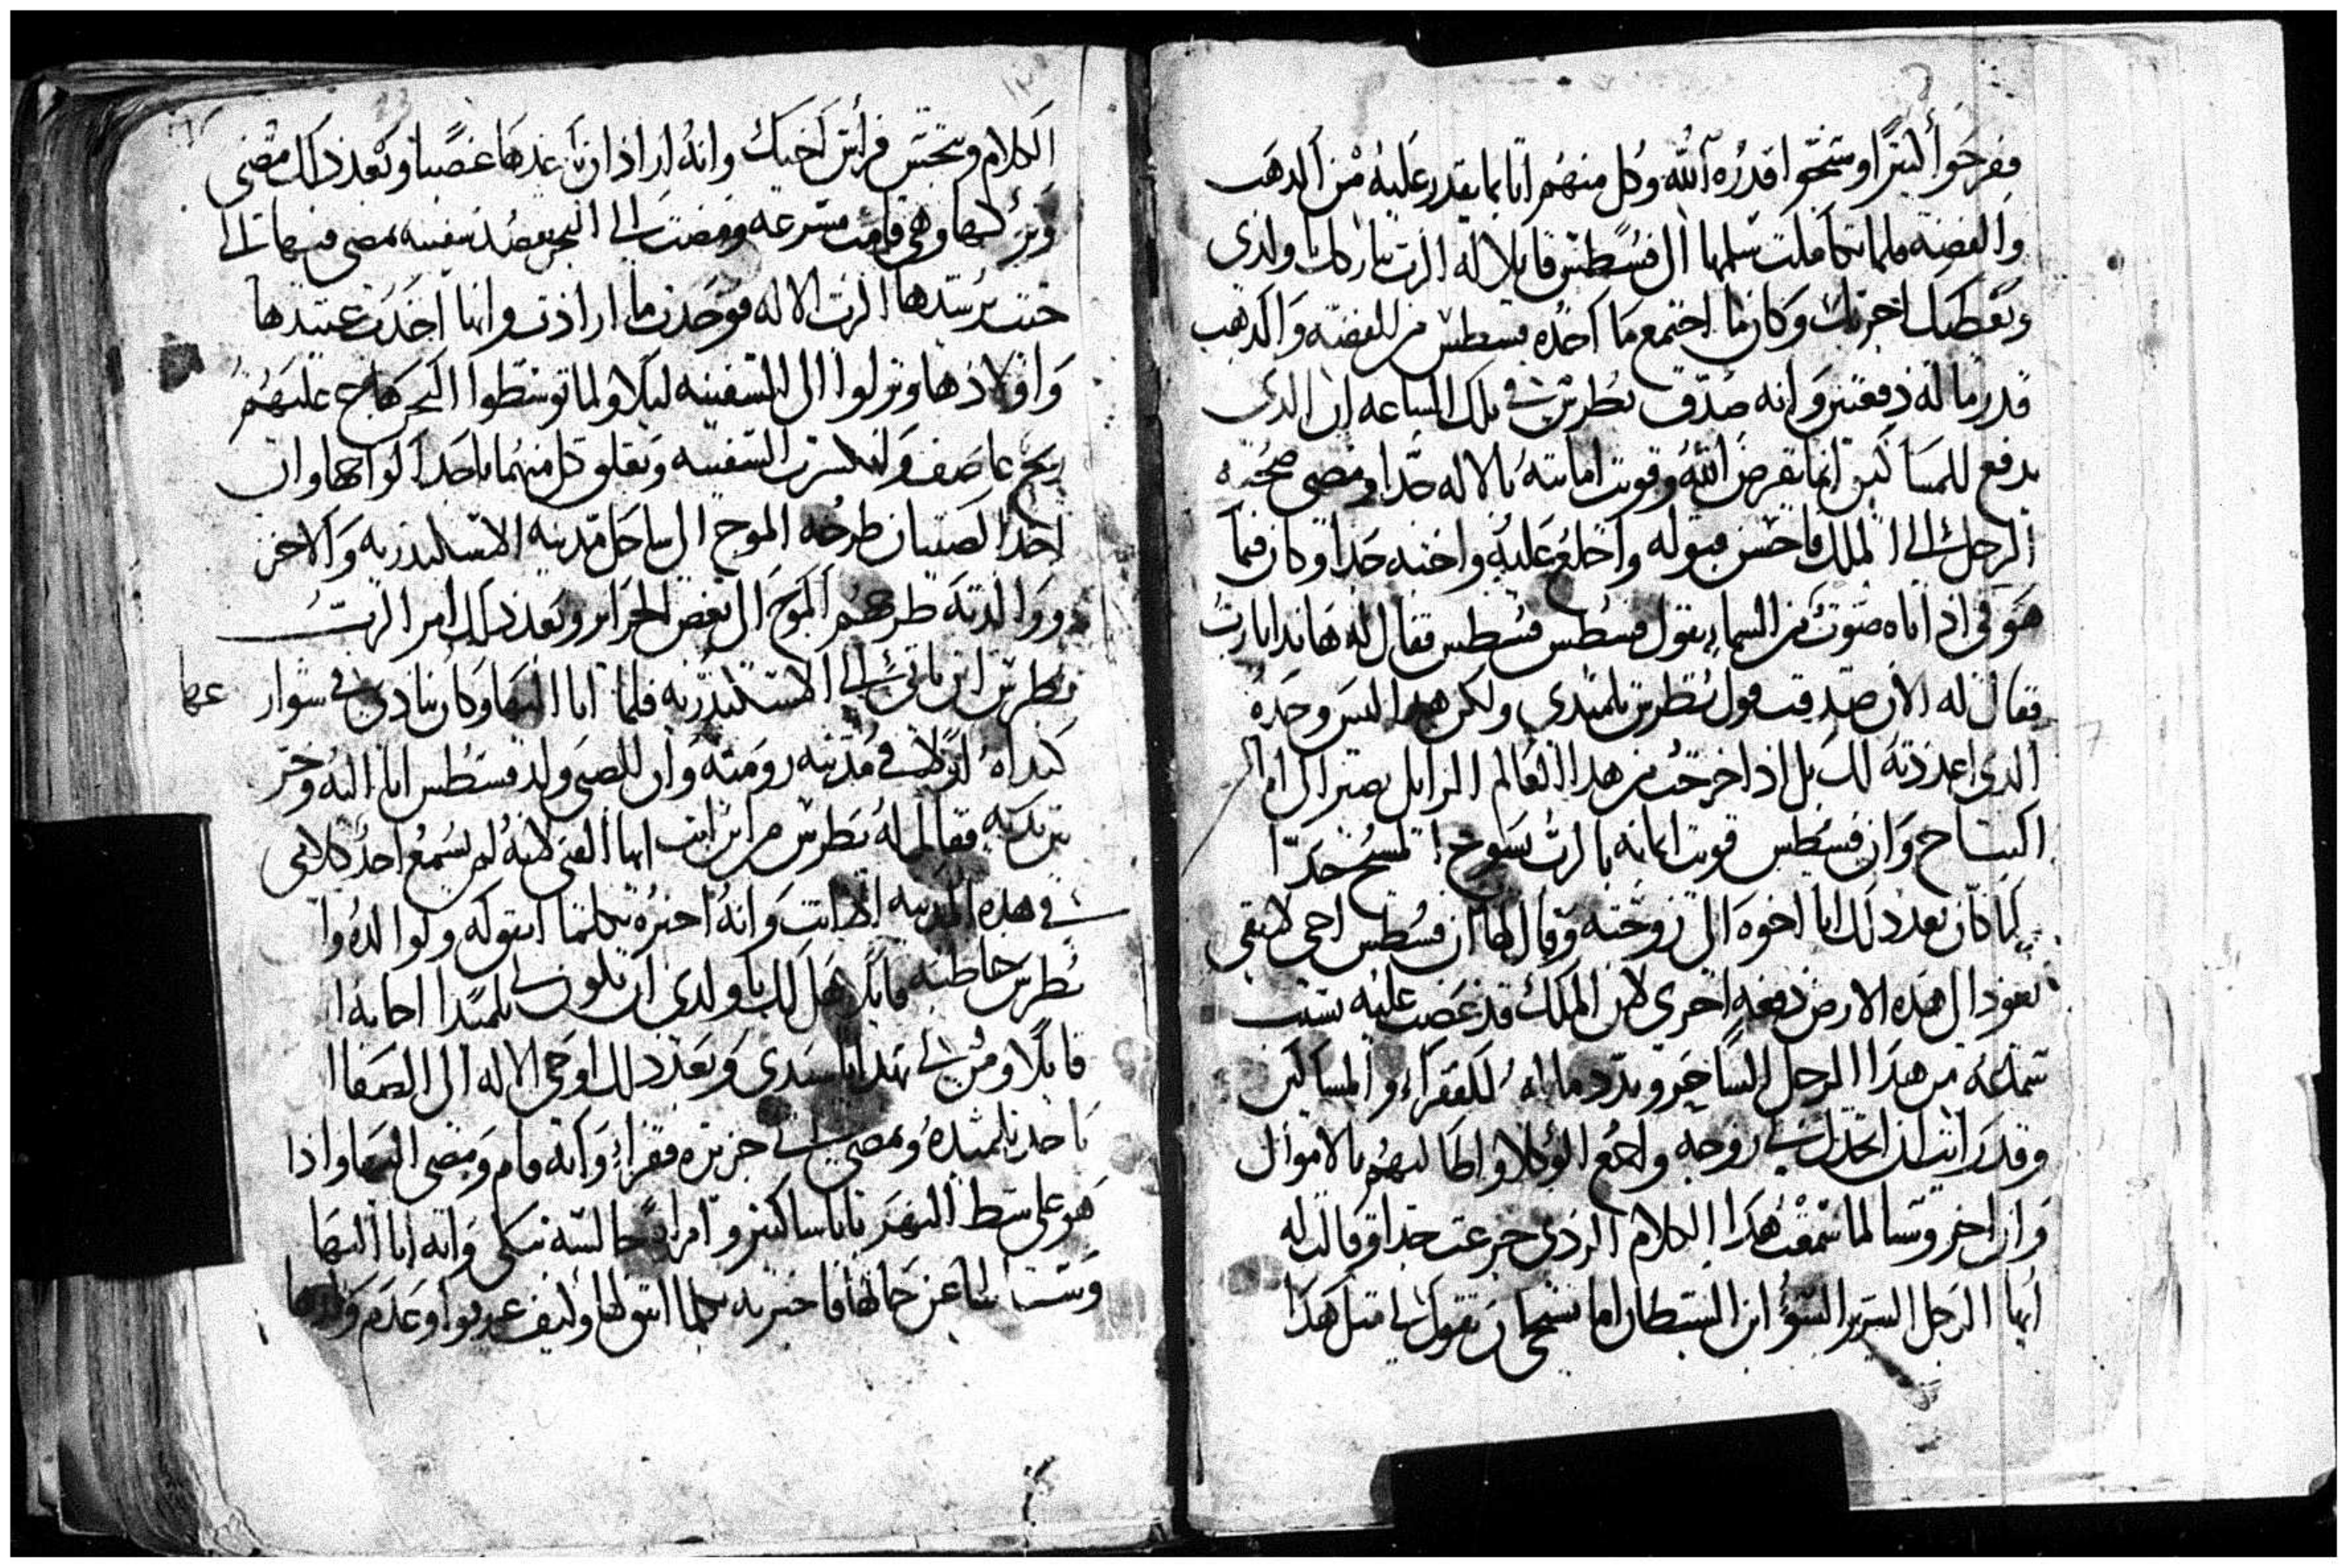 ففرحوا كثيرا وسبحوا قدره الله وكل منهم اتا بما يقدر عليه من الدهب
والفضه فلما تكاملت سلمها الى فسطس قايلا له الرب يباركك يا ولدى
ويعطيك اجرتك وكان ما اجتمع ما اخده فسطس من الفضه والدهب
قدر ماله دفعتين وانه صدق بطرس في تلك الساعه ان الدى
يدفع للمساكين انما يقرض الله وقويت امانته بالاله جدا ومضى صحبة
الرجل الى الملك فاحسن قبوله واخلع عليه واحبه جدا وكان فيما
هو في اذ اتاه صوت من السماء يقول فسطس فسطس فقال له هاندا يا رب
فقال له الان صدقت قول بطرس تلميدي ولكن هدا ليس وحده
الدى اعددته لك بل ادا خرجت من هدا العالم الزايل تصير الى
النياح وان فسطس قويت امانه بالرب يسوع المسيح جدا
لما كان بعد دلك اتا اخوه الى زوجته وقال لها ان فسطس اخى لا بقى
يعود الى هده الارض دفعه اخرى لان الملك قد غضب عليه بسبب
سماعه من هدا الرجل الساحر وبدد ماله للفقراء والمساكين
وقد رايت ان اتخدك لي زوجه واجمع الوكلا واطالبهم بالاموال
وان اخروسيا لما سمعت هدا الكلام الردى جزعت جدا وقالت له
ايها الرجل الشرير السوء ابن الشيطان اما تستحى ان تقول لى مثل هدا
الكلام وتنجس فراش اخيك وانه اراد ان ياخدها غصبا وبعد دلك مضى
وتركها وهي قامت مسرعه ومضت الى البحر تقصد سفينه تمضى فيها الى
حيث يرشدها الرب الاله فوجدت ما ارادت وانها اخدت عبيدها
واولادها ونزلوا الى السفينه ليلا ولما توسطوا البحر هاج عليهم
ريح عاصف وانكسرت السفينه وتعلق كل منهما باحد الواحها وان
احد الصبيان طرحه الموج الى ساحل مدينه الاسكندريه والاخر
ووالدته طرحهم الموج الى بعض الجزاير وبعد دلك امر الرب
بطرس ان ياتى الى الاسكندريه فلما اتا اليها وكان ينادى في شوار عها
كنداه اولا في مدينه روميه وان الصبى ولد فسطس اتا اليه وخر
بين يديه فقال له بطرس من اين انت ايها الفتى لانه لم يسمع احد كلامى
في هده المدينه الا انت وانه اخبره بكلما اتفق له ولوالده وا
بطرس خاطبه قايلا هل لك يا ولدى ان تكون لى تلميدا اجابه
قايلا ومن لى بهدا يا سيدى وبعد دلك اوحى الاله الى الصفا
ياخد تلميده ويمضي الى جزيره فقراء وانه قام ومضى اليها وادا
هو على شط النهر باناس مساكين وامراه جالسه تبكى وانه اتا اليها
وسالها عن حالها فاخبرته بكلما اتفق لها وكيف غرقوا وعدم